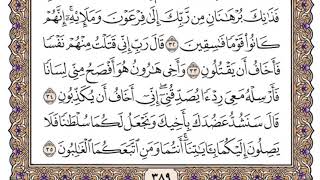 فَذَٰنِكَ بُرْهَٰنَانِ مِن رَّبِّكَ إِلَىٰ فِرْعَوْنَ وَمَلَإِيْهِۦٓ ۚ إِنَّهُمْ
كَانُوا۟ قَوْمًا فَٰسِقِينَ ٣٢ قَالَ رَبِّ إِنِّى قَتَلْتُ مِنْهُمْ نَفْسًا
فَأَخَافُ أَن يَقْتُلُونِ ٣٣ وَأَخِى هَٰرُونُ هُوَ أَفْصَحُ مِنِّى لِسَانًا
فَأَرْسِلْهُ مَعِىَ رِدْءًا يُصَدِّقُنِىٓ ۖ إِنِّىٓ أَخَافُ أَن يُكَذِّبُونِ ٣٤
قَالَ سَنَشُدُّ عَضُدَكَ بِأَخِيكَ وَنَجْعَلُ لَكُمَا سُلْطَٰنًا فَلَا
يَصِلُونَ إِلَيْكُمَا ۚ بِـَٔايَٰتِنَآ أَنتُمَا وَمَنِ ٱتَّبَعَكُمَا ٱلْغَٰلِبُونَ ٣٥
٣٨٩